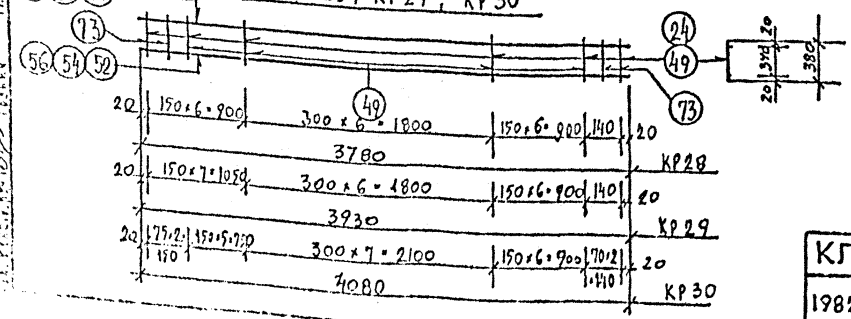 КР 30
73
24
56 54 52
49
49
73
20 340 20
380
20 150×6=900 300×6=1800 150×6=900 140 20
3780 КР28
20 150×7=1050 300×6=1800 150×6=900 140 20
3930 КР29
20 75×2=150 150×5=750 300×7=2100 150×6=900 70×2=140 20
4080 КР30
198